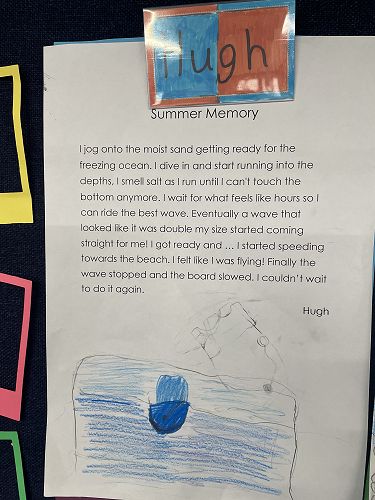 Hugh
Summer Memory
I jog onto the moist sand getting ready for the
freezing ocean. I dive in and start running into the
depths, I smell salt as I run until I can't touch the
bottom anymore. I wait for what feels like hours so I
can ride the best wave. Eventually a wave that
looked like it was double my size started coming
straight for me! I got ready and ... I started speeding
towards the beach. I felt like I was flying! Finally the
wave stopped and the board slowed. I couldn't wait
to do it again.
Hugh